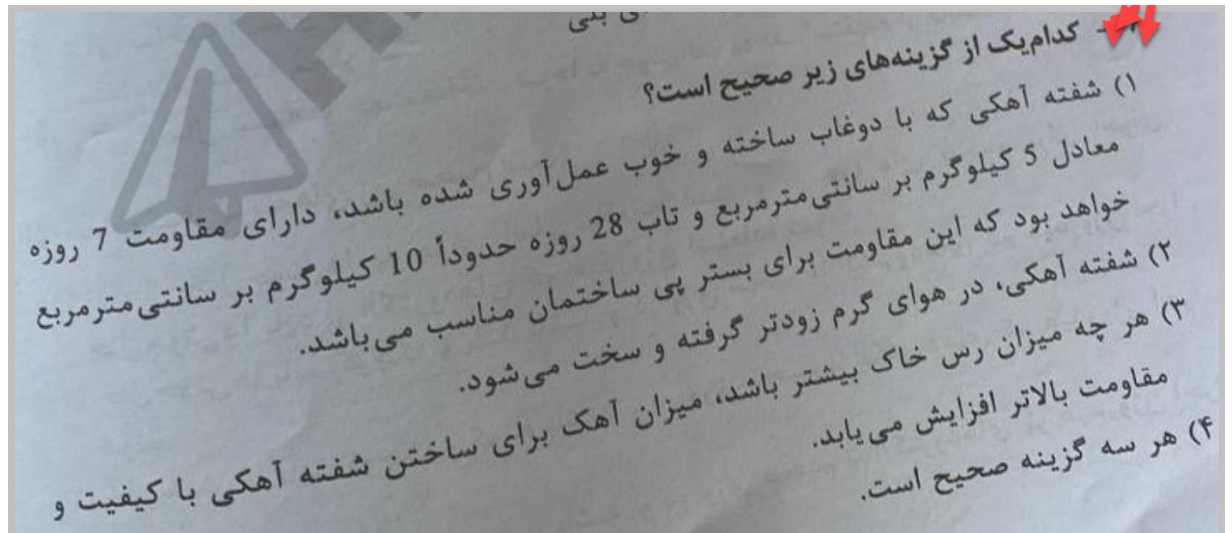 ی بتی
- کدام‌یک از گزینه‌های زیر صحیح است؟
۱) شفته آهکی که با دوغاب ساخته و خوب عمل‌آوری شده باشد، دارای مقاومت 7 روزه
معادل 5 کیلوگرم بر سانتی‌مترمربع و تاب 28 روزه حدوداً 10 کیلوگرم بر سانتی‌مترمربع
خواهد بود که این مقاومت برای بستر پی ساختمان مناسب می‌باشد.
۲) شفته آهکی، در هوای گرم زودتر گرفته و سخت می‌شود.
۳) هر چه میزان رس خاک بیشتر باشد، میزان آهک برای ساختن شفته آهکی با کیفیت و
مقاومت بالاتر افزایش می‌یابد.
۴) هر سه گزینه صحیح است.